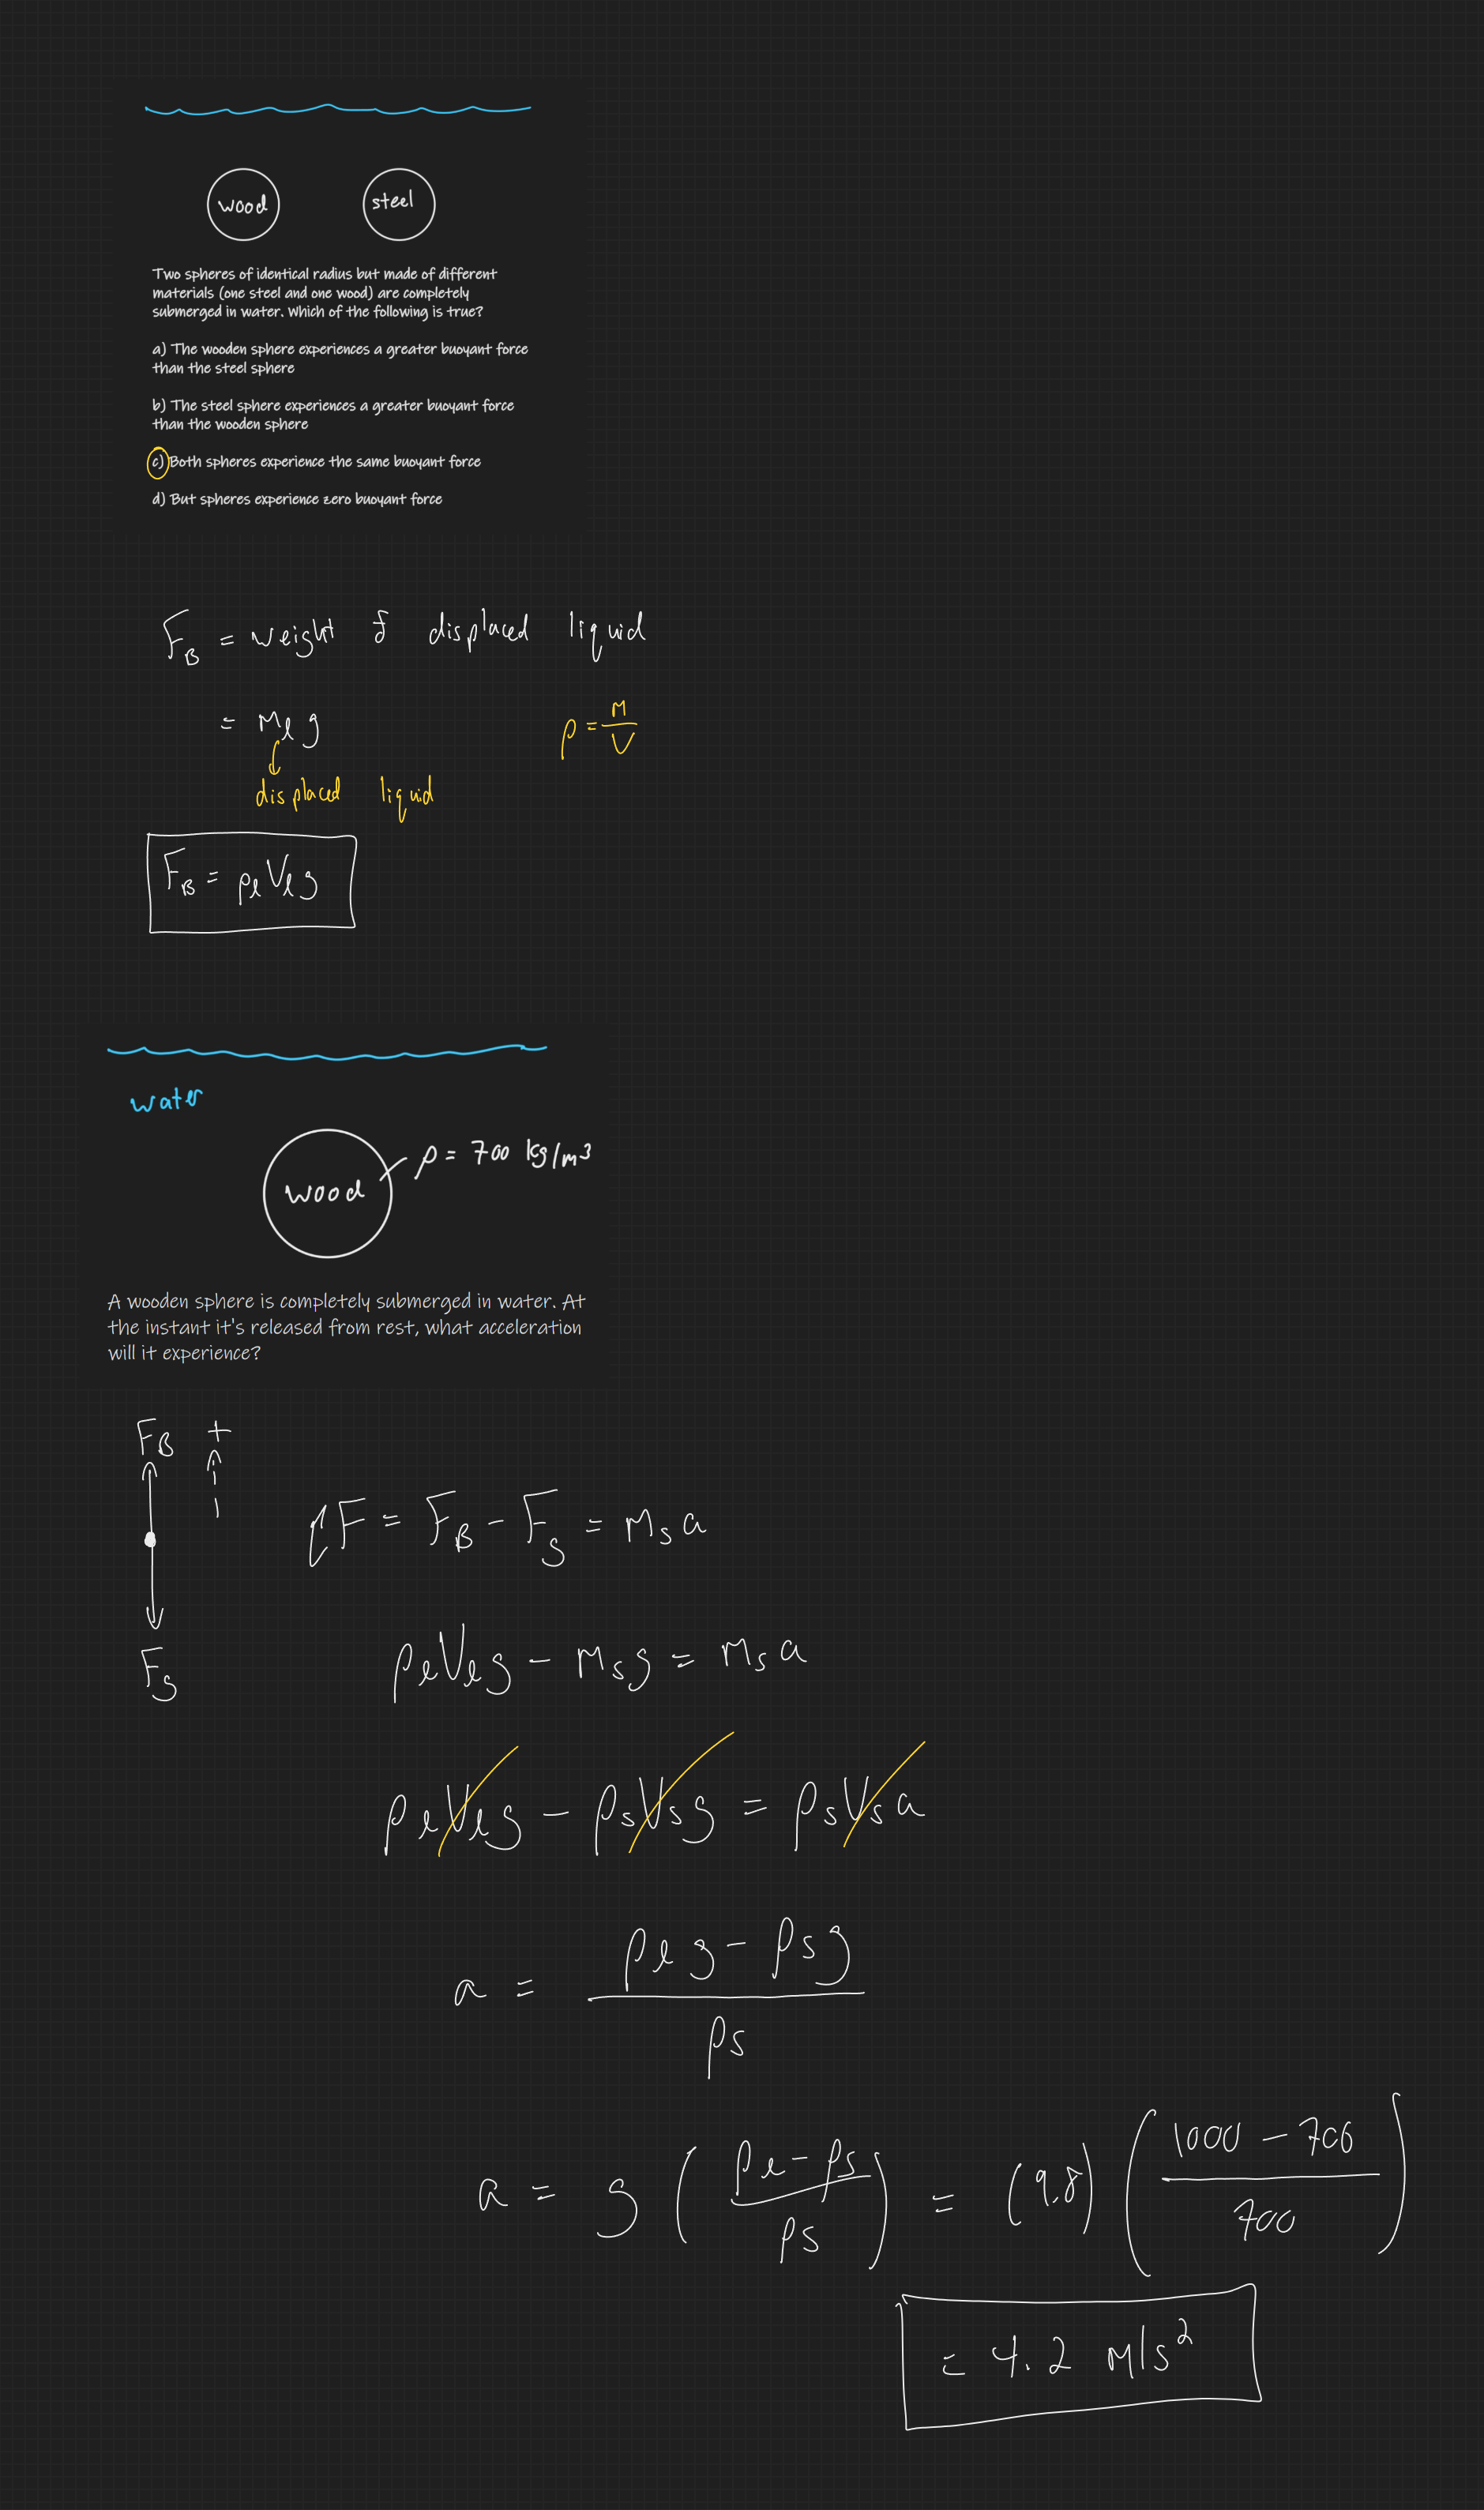 wood
steel
Two spheres of identical radius but made of different
materials (one steel and one wood) are completely
submerged in water. Which of the following is true?
a) The wooden sphere experiences a greater buoyant force
than the steel sphere
b) The steel sphere experiences a greater buoyant force
than the wooden sphere
c) Both spheres experience the same buoyant force
d) But spheres experience zero buoyant force
F_B = weight of displaced liquid
= m_l g
ρ = m/V
displaced liquid
F_B = ρ_l V_l g
water
wood
ρ = 700 kg/m³
A wooden sphere is completely submerged in water. At
the instant it's released from rest, what acceleration
will it experience?
F_B +
F_g
ΣF = F_B - F_g = m_s a
ρ_l V_l g - m_s g = m_s a
ρ_l V_l g - ρ_s V_s g = ρ_s V_s a
a = (ρ_l g - ρ_s g)/ρ_s
a = g ((ρ_l - ρ_s)/ρ_s) = (9.8) ((1000 - 700)/700)
= 4.2 m/s²